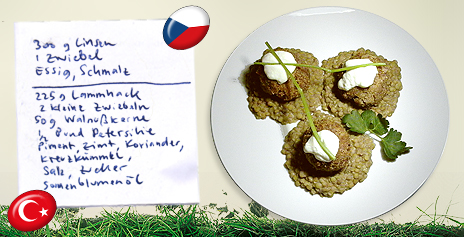 300 g Linsen
1 Zwiebel
Essig, Schmalz
225 g Lammhack
2 kleine Zwiebeln
50g Walnußkerne
½ Bund Petersilie
Piment, Zimt, Koriander,
Kreuzkümmel,
Salz, Zucker
Sonnenblumenöl